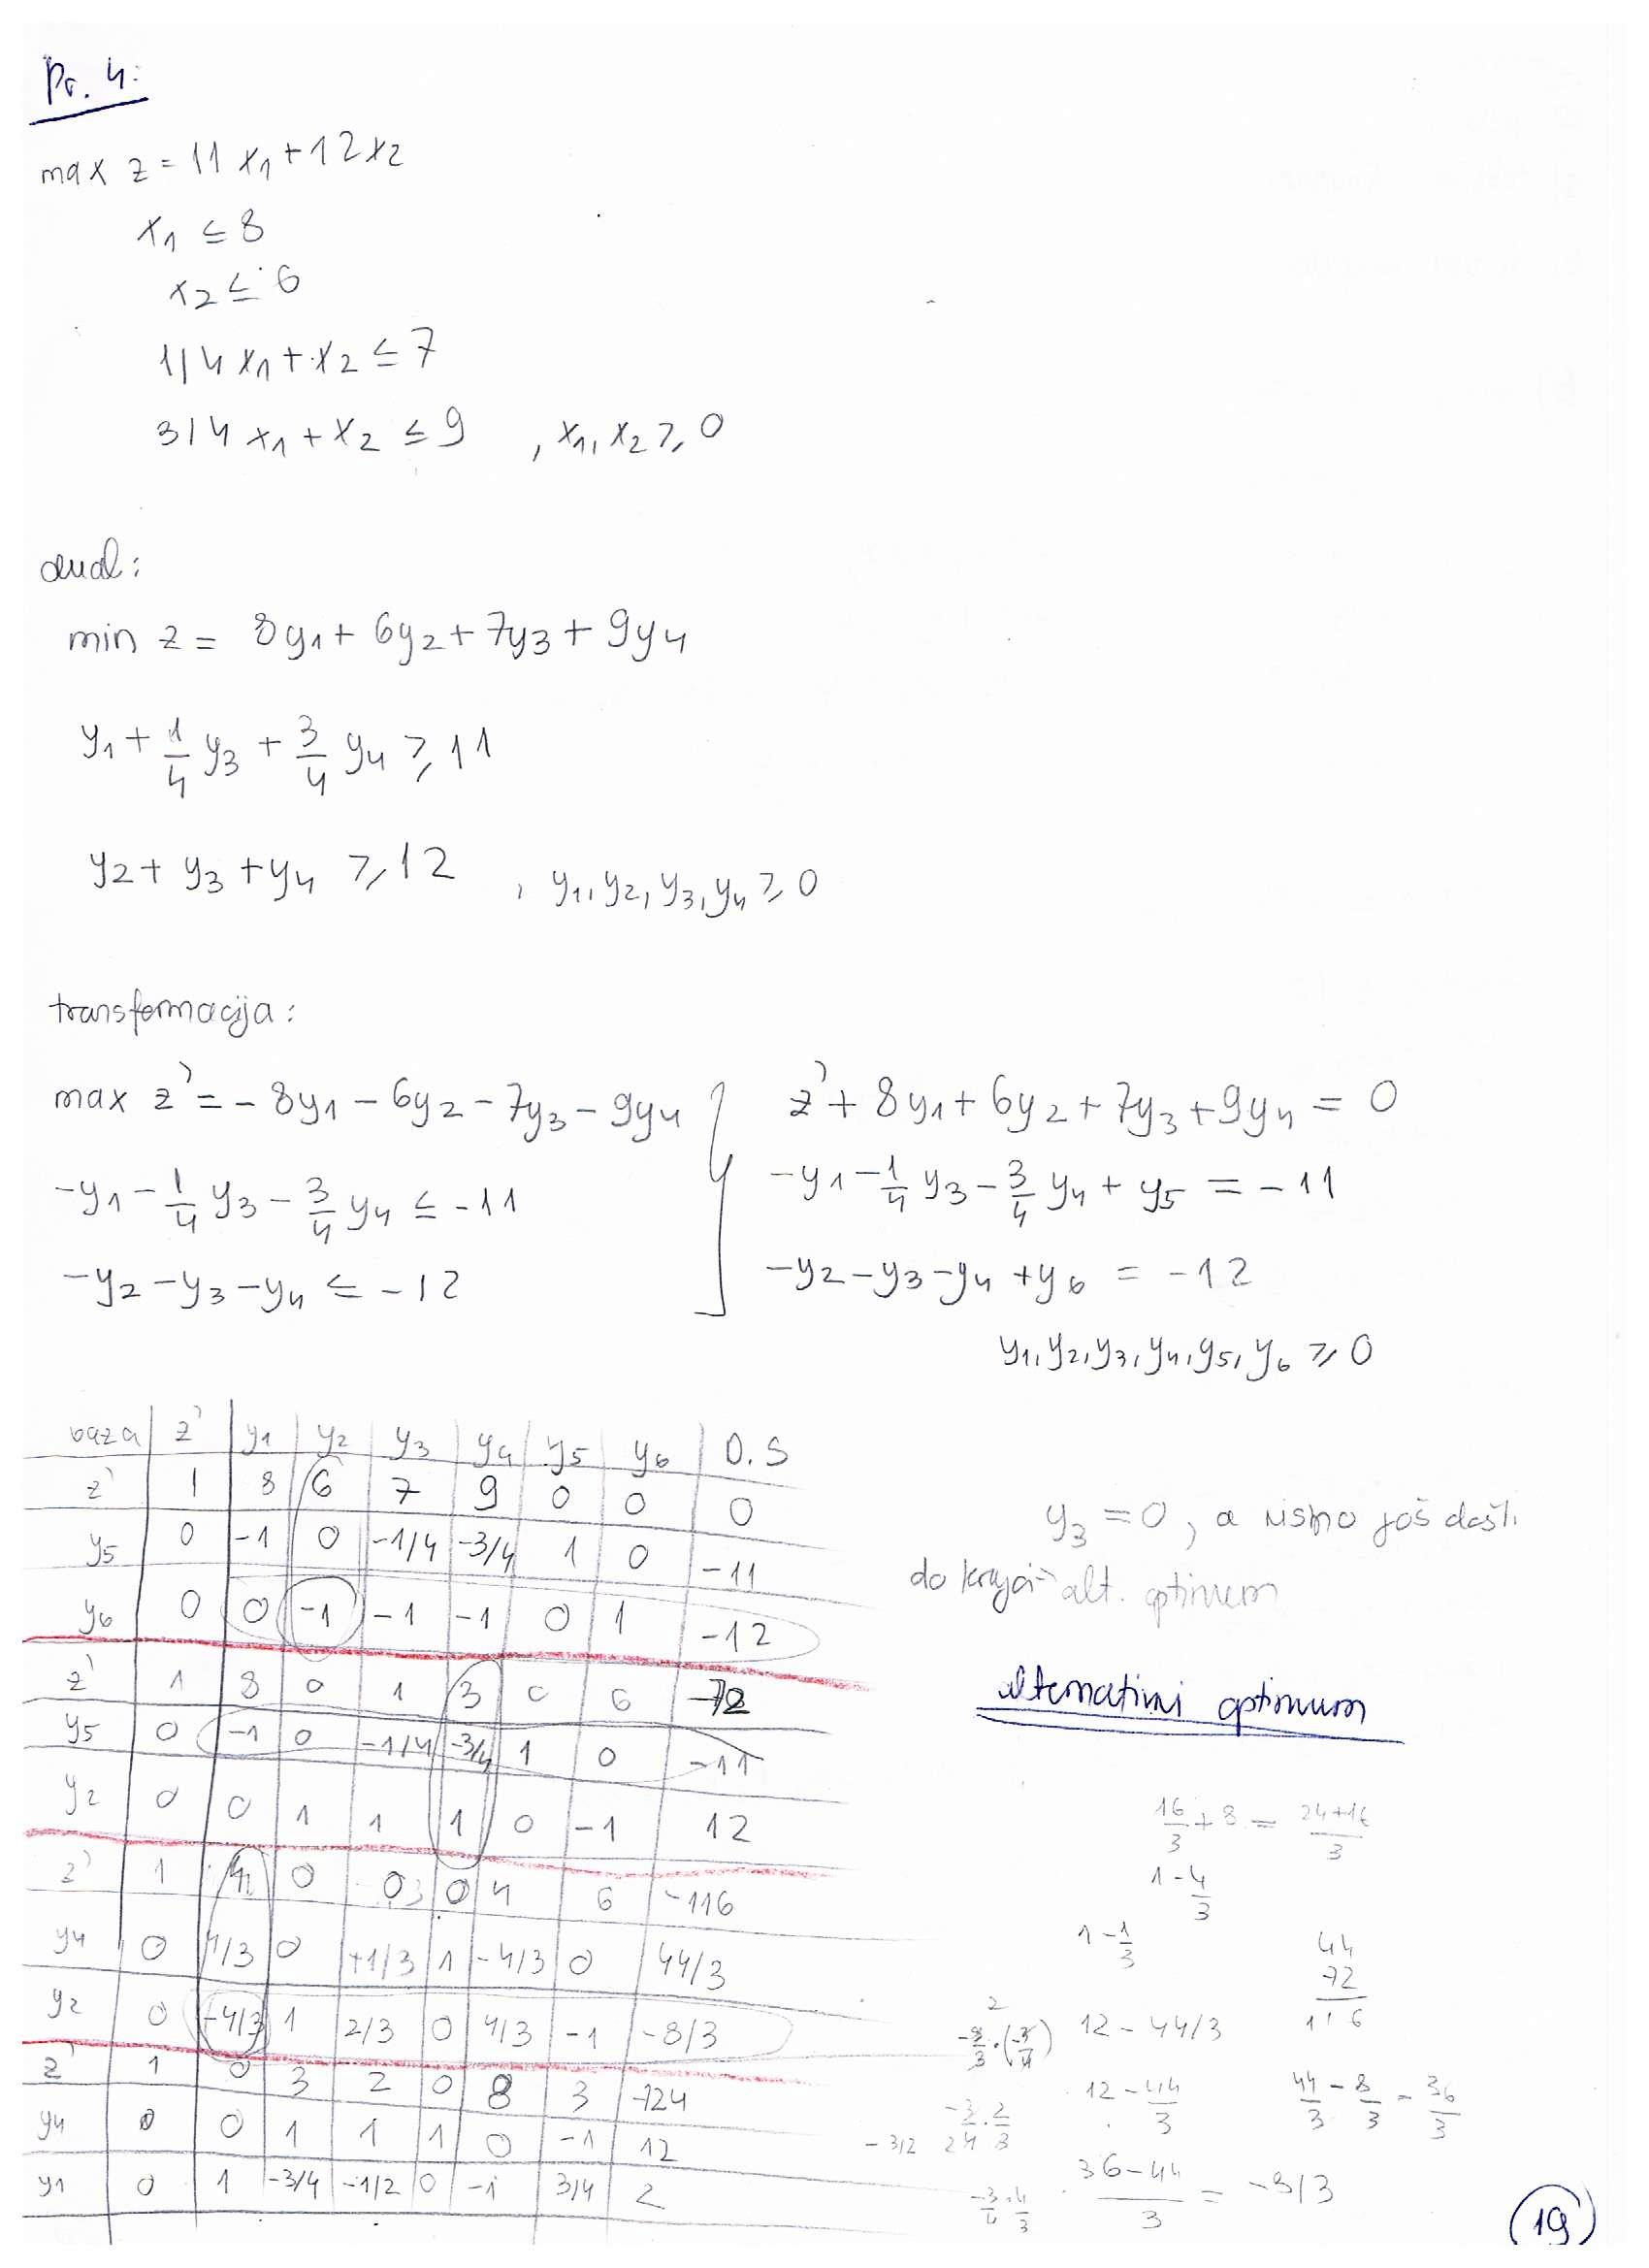 Pr. 4:
max z = 11 x1 + 12 x2
x1 ≤ 8
x2 ≤ 6
1/4 x1 + x2 ≤ 7
3/4 x1 + x2 ≤ 9 , x1, x2 ≥ 0
dual:
min z = 8y1 + 6y2 + 7y3 + 9y4
y1 + 1/4 y3 + 3/4 y4 ≥ 11
y2 + y3 + y4 ≥ 12 , y1, y2, y3, y4 ≥ 0
transformacija:
max z' = - 8y1 - 6y2 - 7y3 - 9y4
-y1 - 1/4 y3 - 3/4 y4 ≤ -11
-y2 - y3 - y4 ≤ -12
z' + 8y1 + 6y2 + 7y3 + 9y4 = 0
-y1 - 1/4 y3 - 3/4 y4 + y5 = -11
-y2 - y3 - y4 + y6 = -12
y1, y2, y3, y4, y5, y6 ≥ 0
baza z' y1 y2 y3 y4 y5 y6 D.S
z' 1 8 6 7 9 0 0 0
y5 0 -1 0 -1/4 -3/4 1 0 -11
y6 0 0 -1 -1 -1 0 1 -12
z' 1 8 0 1 3 0 6 -72
y5 0 -1 0 -1/4 -3/4 1 0 -11
y2 0 0 1 1 1 0 -1 12
z' 1 4 0 0 0 4 6 -116
y4 0 4/3 0 +1/3 1 -4/3 0 44/3
y2 0 -4/3 1 2/3 0 4/3 -1 -8/3
z' 1 0 3 2 0 8 3 -124
y4 0 0 1 1 1 0 -1 12
y1 0 1 -3/4 -1/2 0 -1 3/4 2
y3 = 0, a nismo još došli
do kraja - alt. optimum
alternativni optimum
16/3 + 8 = 24+16/3
1 - 4/3
1 - 1/3
44
72
116
12 - 44/3
12 - 44/3
44/3 - 8/3 = 36/3
- 3/2
36-44/3 = -8/3
19